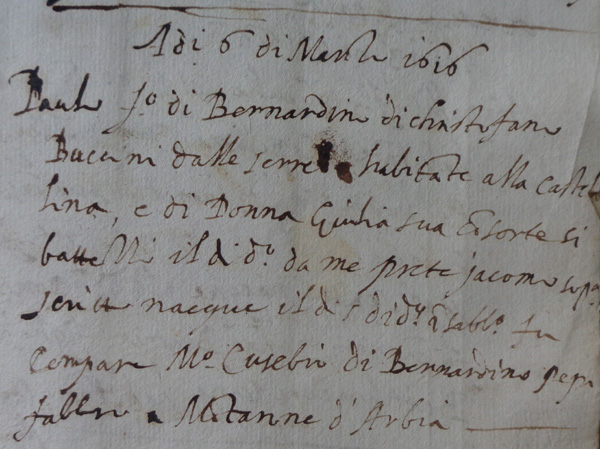 Adi 6 di Marzo 1616
Paulo fo. di Bernardino di christofano
Buccini dalle serre habitate alla Castel
lina, e di Donna Giulia sua Cōsorte si
battezzò il dì do. da me prete Jacomo sopa.
scritto nacque il dì 5 di do. ī sabbo. fu
Compare Mo. Eusebio di Bernardino
fabbro a Mōtarone d'Arbia